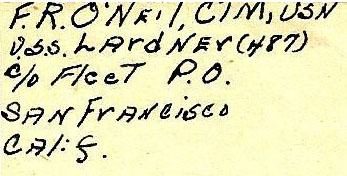 F.R.O'Neil, CTM, USN
U.S.S. Lardner (487)
c/o Fleet P.O.
San Francisco
Calif.